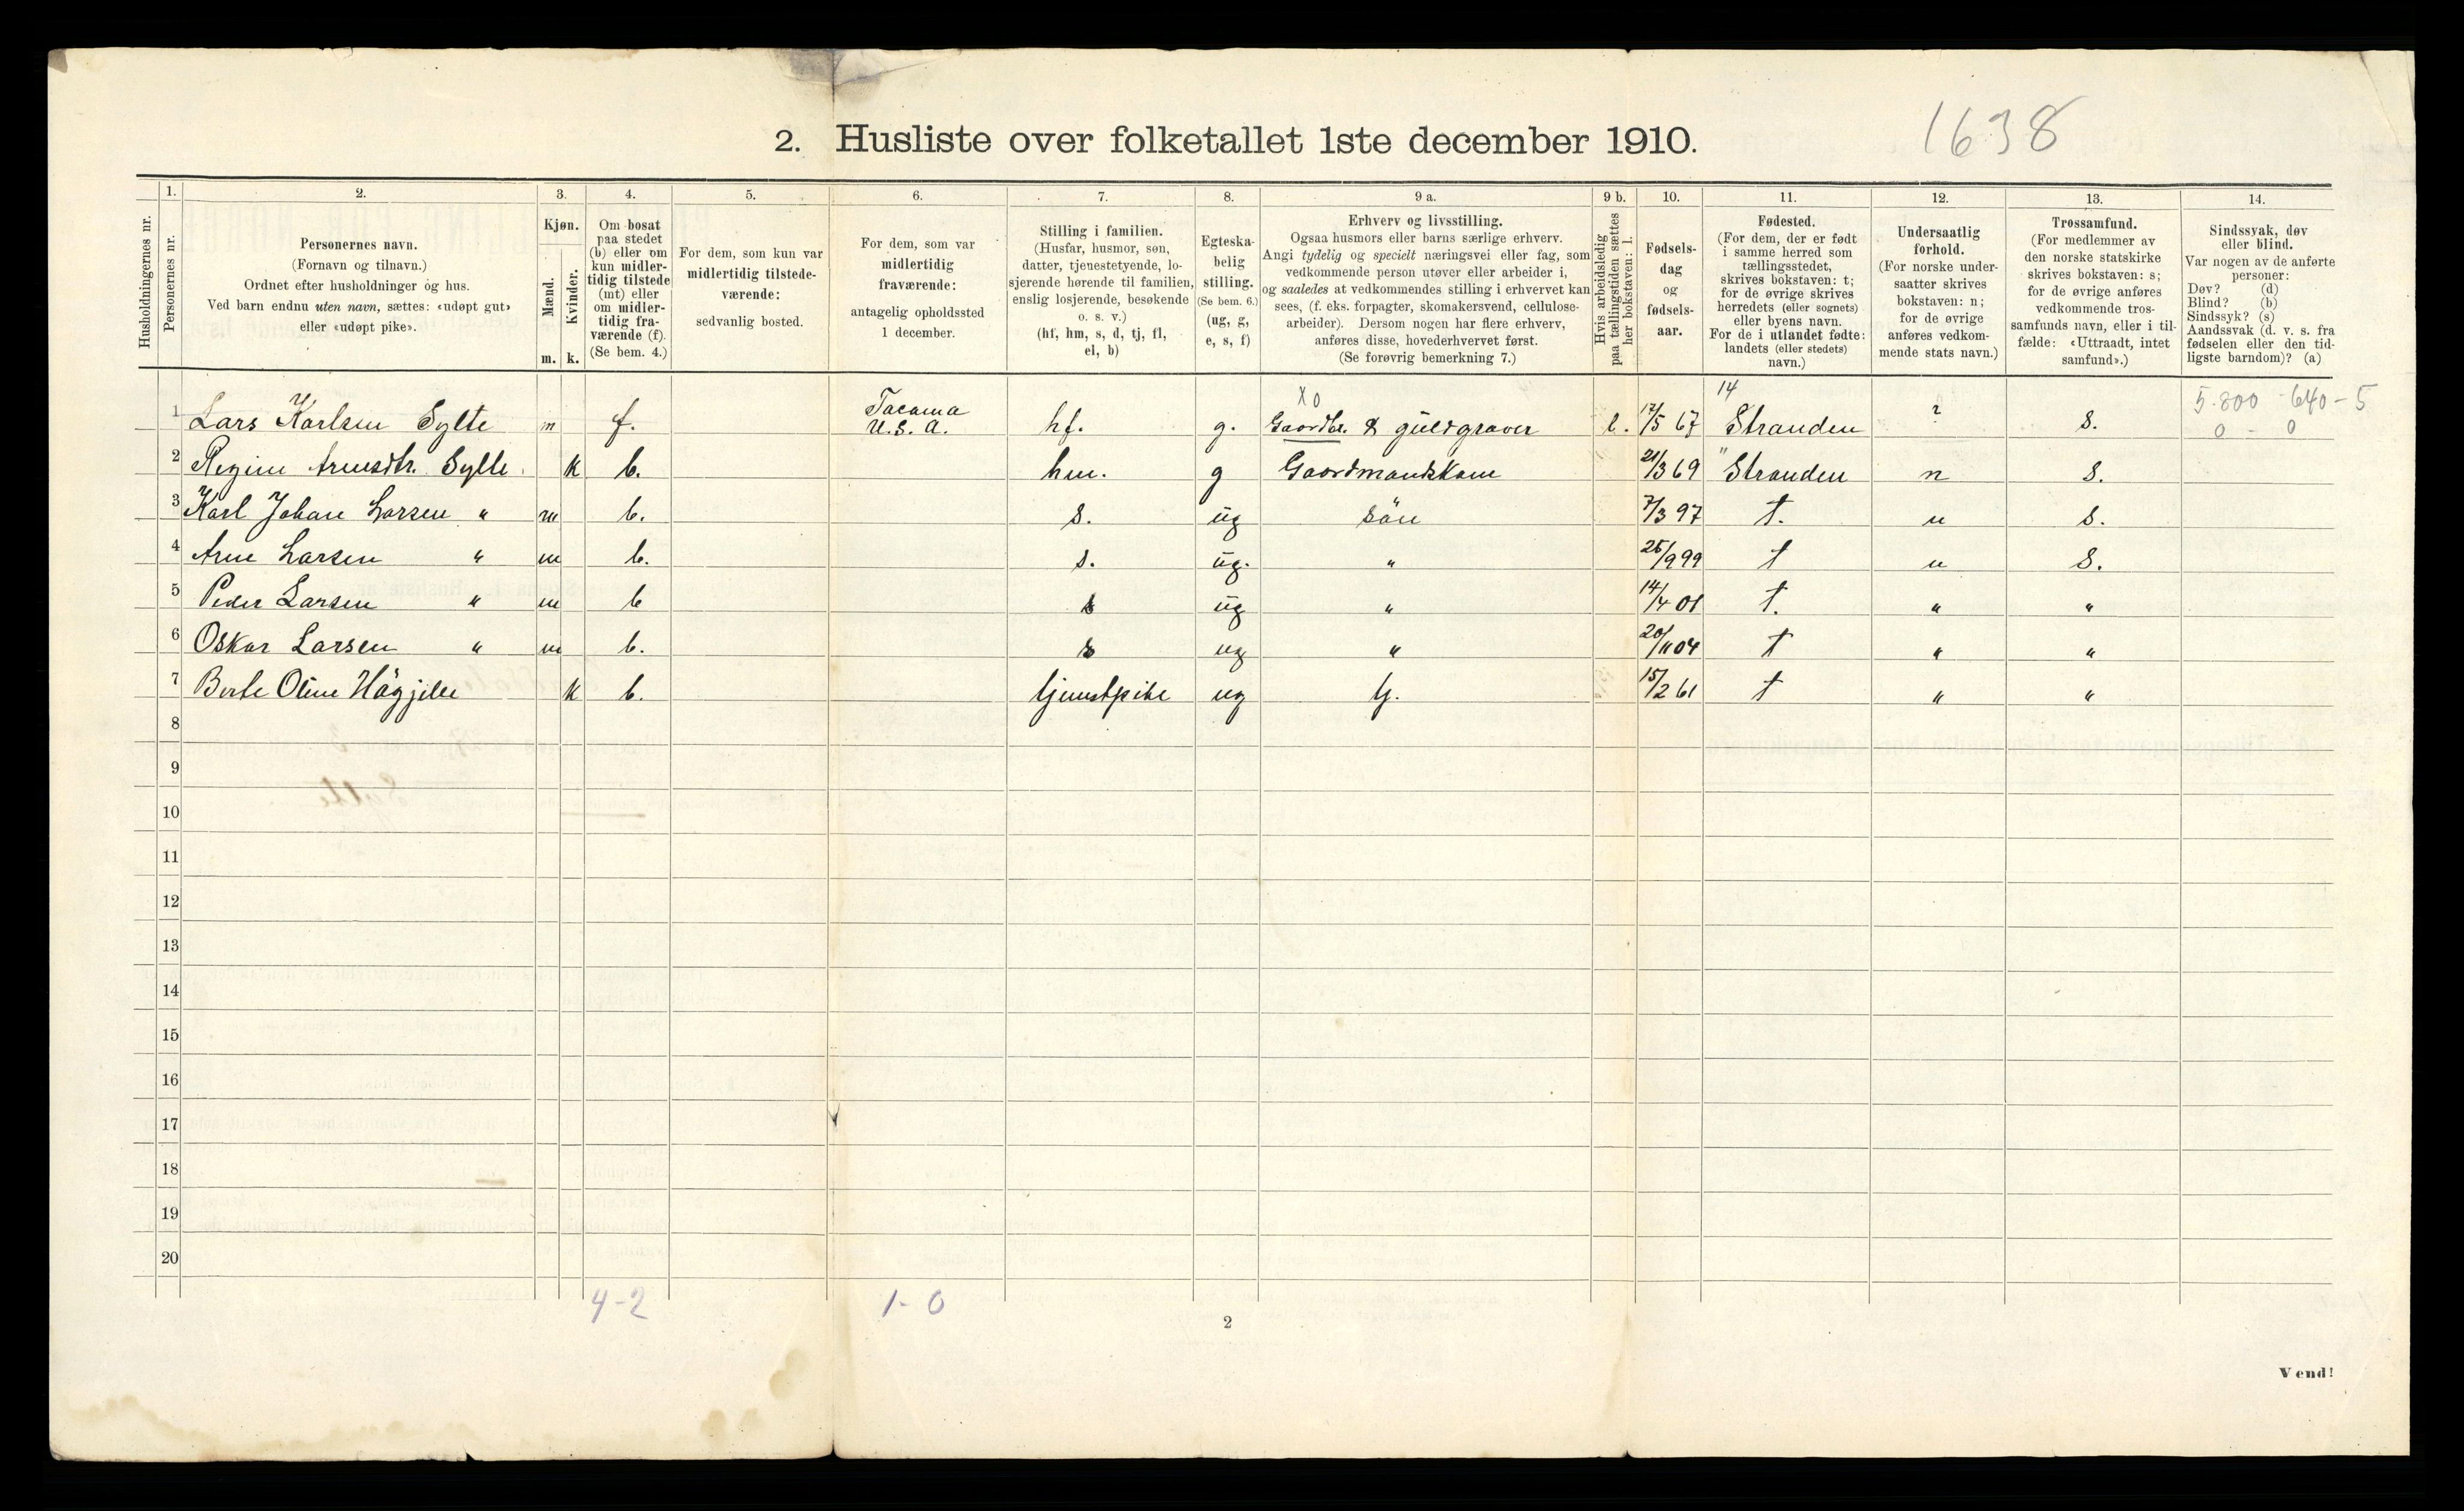 1638
2. Husliste over folketallet 1ste december 1910.
Husholdningernes nr.
1.
Personernes nr.
2.
Personernes navn.
(Fornavn og tilnavn.)
Ordnet efter husholdninger og hus.
Ved barn endnu uten navn, sættes: «udøpt gut»
eller «udøpt pike».
3.
Kjøn.
Mænd.
Kvinder.
m. k.
4.
Om bosat
paa stedet
(b) eller om
kun midler-
tidig tilstede
(mt) eller
om midler-
tidig fra-
værende (f).
(Se bem. 4.)
5.
For dem, som kun var
midlertidig tilstede-
værende:
sedvanlig bosted.
6.
For dem, som var
midlertidig
fraværende:
antagelig opholdssted
1 december.
7.
Stilling i familien.
(Husfar, husmor, søn,
datter, tjenestetyende, lo-
sjerende hørende til familien,
enslig losjerende, besøkende
o. s. v.)
(hf, hm, s, d, tj, fl,
el, b)
8.
Egteska-
belig
stilling.
(Se bem. 6.)
(ug, g,
e, s, f)
9 a.
Erhverv og livsstilling.
Ogsaa husmors eller barns særlige erhverv.
Angi tydelig og specielt næringsvei eller fag, som
vedkommende person utøver eller arbeider i,
og saaledes at vedkommendes stilling i erhvervet kan
sees, (f. eks. forpagter, skomakersvend, cellulose-
arbeider). Dersom nogen har flere erhverv,
anføres disse, hovederhvervet først.
(Se forøvrig bemerkning 7.)
9 b.
Hvis arbeidsledig
paa tællingstiden sættes
her bokstaven: l.
10.
Fødsels-
dag
og
fødsels-
aar.
11.
Fødested.
(For dem, der er født
i samme herred som
tællingsstedet,
skrives bokstaven: t;
for de øvrige skrives
herredets (eller sognets)
eller byens navn.
For de i utlandet fødte:
landets (eller stedets)
navn.)
12.
Undersaatlig
forhold.
(For norske under-
saatter skrives
bokstaven: n;
for de øvrige
anføres vedkom-
mende stats navn.)
13.
Trossamfund.
(For medlemmer av
den norske statskirke
skrives bokstaven: s;
for de øvrige anføres
vedkommende tros-
samfunds navn, eller i til-
fælde: «Uttraadt, intet
samfund».)
14.
Sindssvak, døv
eller blind.
Var nogen av de anførte
personer:
Døv? (d)
Blind? (b)
Sindssyk? (s)
Aandssvak (d. v. s. fra
fødselen eller den tid-
ligste barndom)? (a)
X0 14 5.800 - 640 - 5
1 Lars Karlsen Sylte m f. Tacoma U.S.A. hf. g. Gaardbr. & guldgraver l. 17/5 67 Stranden ? s. 0 - 0
2 Regine Arnesdtr. Sylte. k b. hm. g Gaardmandskone 21/3 69 " Stranden n s.
3 Karl Johan Larsen " m b. s. ug sön 7/3 97 t. n s.
4 Arne Larsen " m b. s. ug. " 25/9 99 t n s.
5 Peder Larsen " m b s ug " 14/4 01 t. " "
6 Oskar Larsen " m b. s ug " 20/11 04 t " "
7 Berte Oline k b. tjenestpike ug tj. 15/2 61 t " "
8
9
10
11
12
13
14
15
16
17
18
19
20
4-2 1-0
2
Vend!